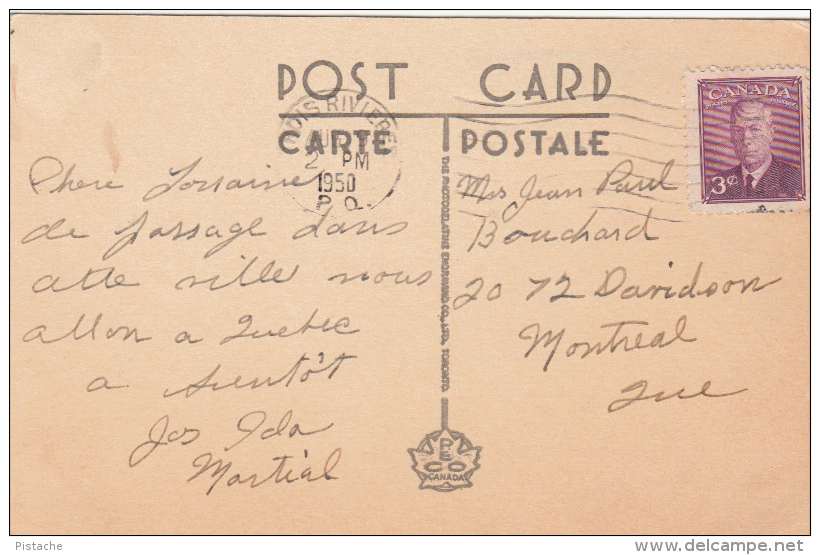 POST CARD
CARTE POSTALE
CANADA
POSTES POSTAGE
3¢
TROIS RIVIERES
2 PM
1950
P.Q.
Chere Lorraine
de passage dans
cette ville nous
allon a Quebec
a bientôt
Jos Ida
Martial
THE PHOTOGELATINE ENGRAVING CO., LTD. TORONTO
PECO
CANADA
Mrs Jean Paul
Bouchard
2072 Davidson
Montreal
Que
Pistache
delcampe.net